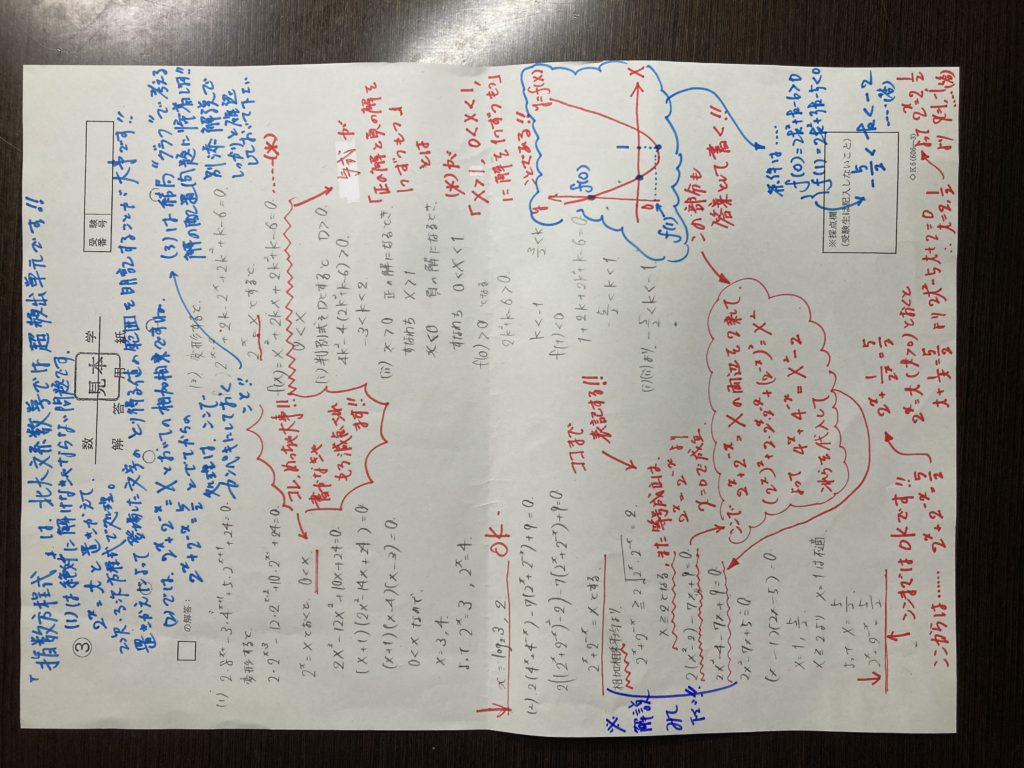 「指数方程式」は、北大文系数学で超頻出単元です!!
(1)は絶対に解けなければならない問題です。
2^x = t と置きかえて、
2次、3次方程式で処理。
置きかえによって登場した文字のとり得る値の範囲を明記することが大事です!!
(2)では、2^x + 2^-x = X とおいての相加相乗ですね。
(3)は解を"グラフ"で考える
解の配置問題に帰着します!!
別添解説で
しっかりと確認
しておいて下さい。
数 学
解 答 用 紙
見本
受験番号
③
の解答:
(1) 2・8^x - 3・4^{x+1} + 5・2^{x+1} + 24 = 0.
変形すると、
2・2^{3x} - 12・2^{2x} + 10・2^x + 24 = 0.
2^x = X とおくと、 0 < X
2X³ - 12X² + 10X + 24 = 0.
(X+1)(2X² - 14X + 24) = 0
(X+1)(X-4)(X-3) = 0.
0 < X なので、
X = 3, 4.
よって 2^x = 3, 2^x = 4.
x = log₂3, 2
OK.
コレ、めっちゃ大事!!
書かなきゃ
もろ減点です!!
(2) 2(4^x + 4^-x) - 7(2^x + 2^-x) + 9 = 0.
2{(2^x + 2^-x)² - 2} - 7(2^x + 2^-x) + 9 = 0.
2^x + 2^-x = X とする.
相加相乗平均より、
2^x + 2^-x ≧ 2√(2^x・2^-x) = 2.
ココまで
表記する!!
X ≧ 2 となる。
また等号成立は、
2^x = 2^-x より
x = 0 で成立
2(X² - 2) - 7X + 9 = 0.
2X² - 4 - 7X + 9 = 0.
2X² - 7X + 5 = 0.
(X-1)(2X-5) = 0
X = 1, 5/2
X ≧ 2 より X = 1 は不適
よって X = 5/2
※解説
みて
下さい!!
ここで 2^x + 2^-x = X の両辺を2乗して、
よって 4^x + 4^-x = X² - 2
これらを代入して
↑ ここまではOKです!!
ここからは…… 2^x + 2^-x = 5/2
2^x + 1/2^x = 5/2
2^x = t (t > 0) とおくと
t + 1/t = 5/2 より 2t² - 5t + 2 = 0
∴ t = 2, 1/2
より 2^x = 2, 1/2
(3) 変形すると、
2^{2x} + 2k・2^x + 2k² + k - 6 = 0.
2^x = X とする.
f(X) = X² + 2kX + 2k² + k - 6 = 0. ……(※)
0 < X
(i) 判別式をDとすると D > 0.
4k² - 4(2k² + k - 6) > 0.
-3 < k < 2
(ii) x > 0 正の解になるとき、
すなわち X > 1
x < 0 負の解になるとき、
すなわち 0 < X < 1
f(0) > 0 となる
2k² + k - 6 > 0.
f(1) < 0
1 + 2k + 2k² + k - 6 = 0.
-5/2 < k < 1
(i)(ii)より、-5/2 < k < -1
与式が
「正の解と負の解を
1つずつもつ」
とは
(※)が
「X > 1, 0 < X < 1,
に解を1つずつもつ」
ことである!!
y
y = f(X)
f(0)
f(1)
0
1
X
この部分も
答案として書く!!
条件は……
f(0) = 2k² + k - 6 > 0
f(1) = 2k² + 3k - 5 < 0
-5/2 < k < -2
……(答)
※採点欄
(受験生は記入しないこと)